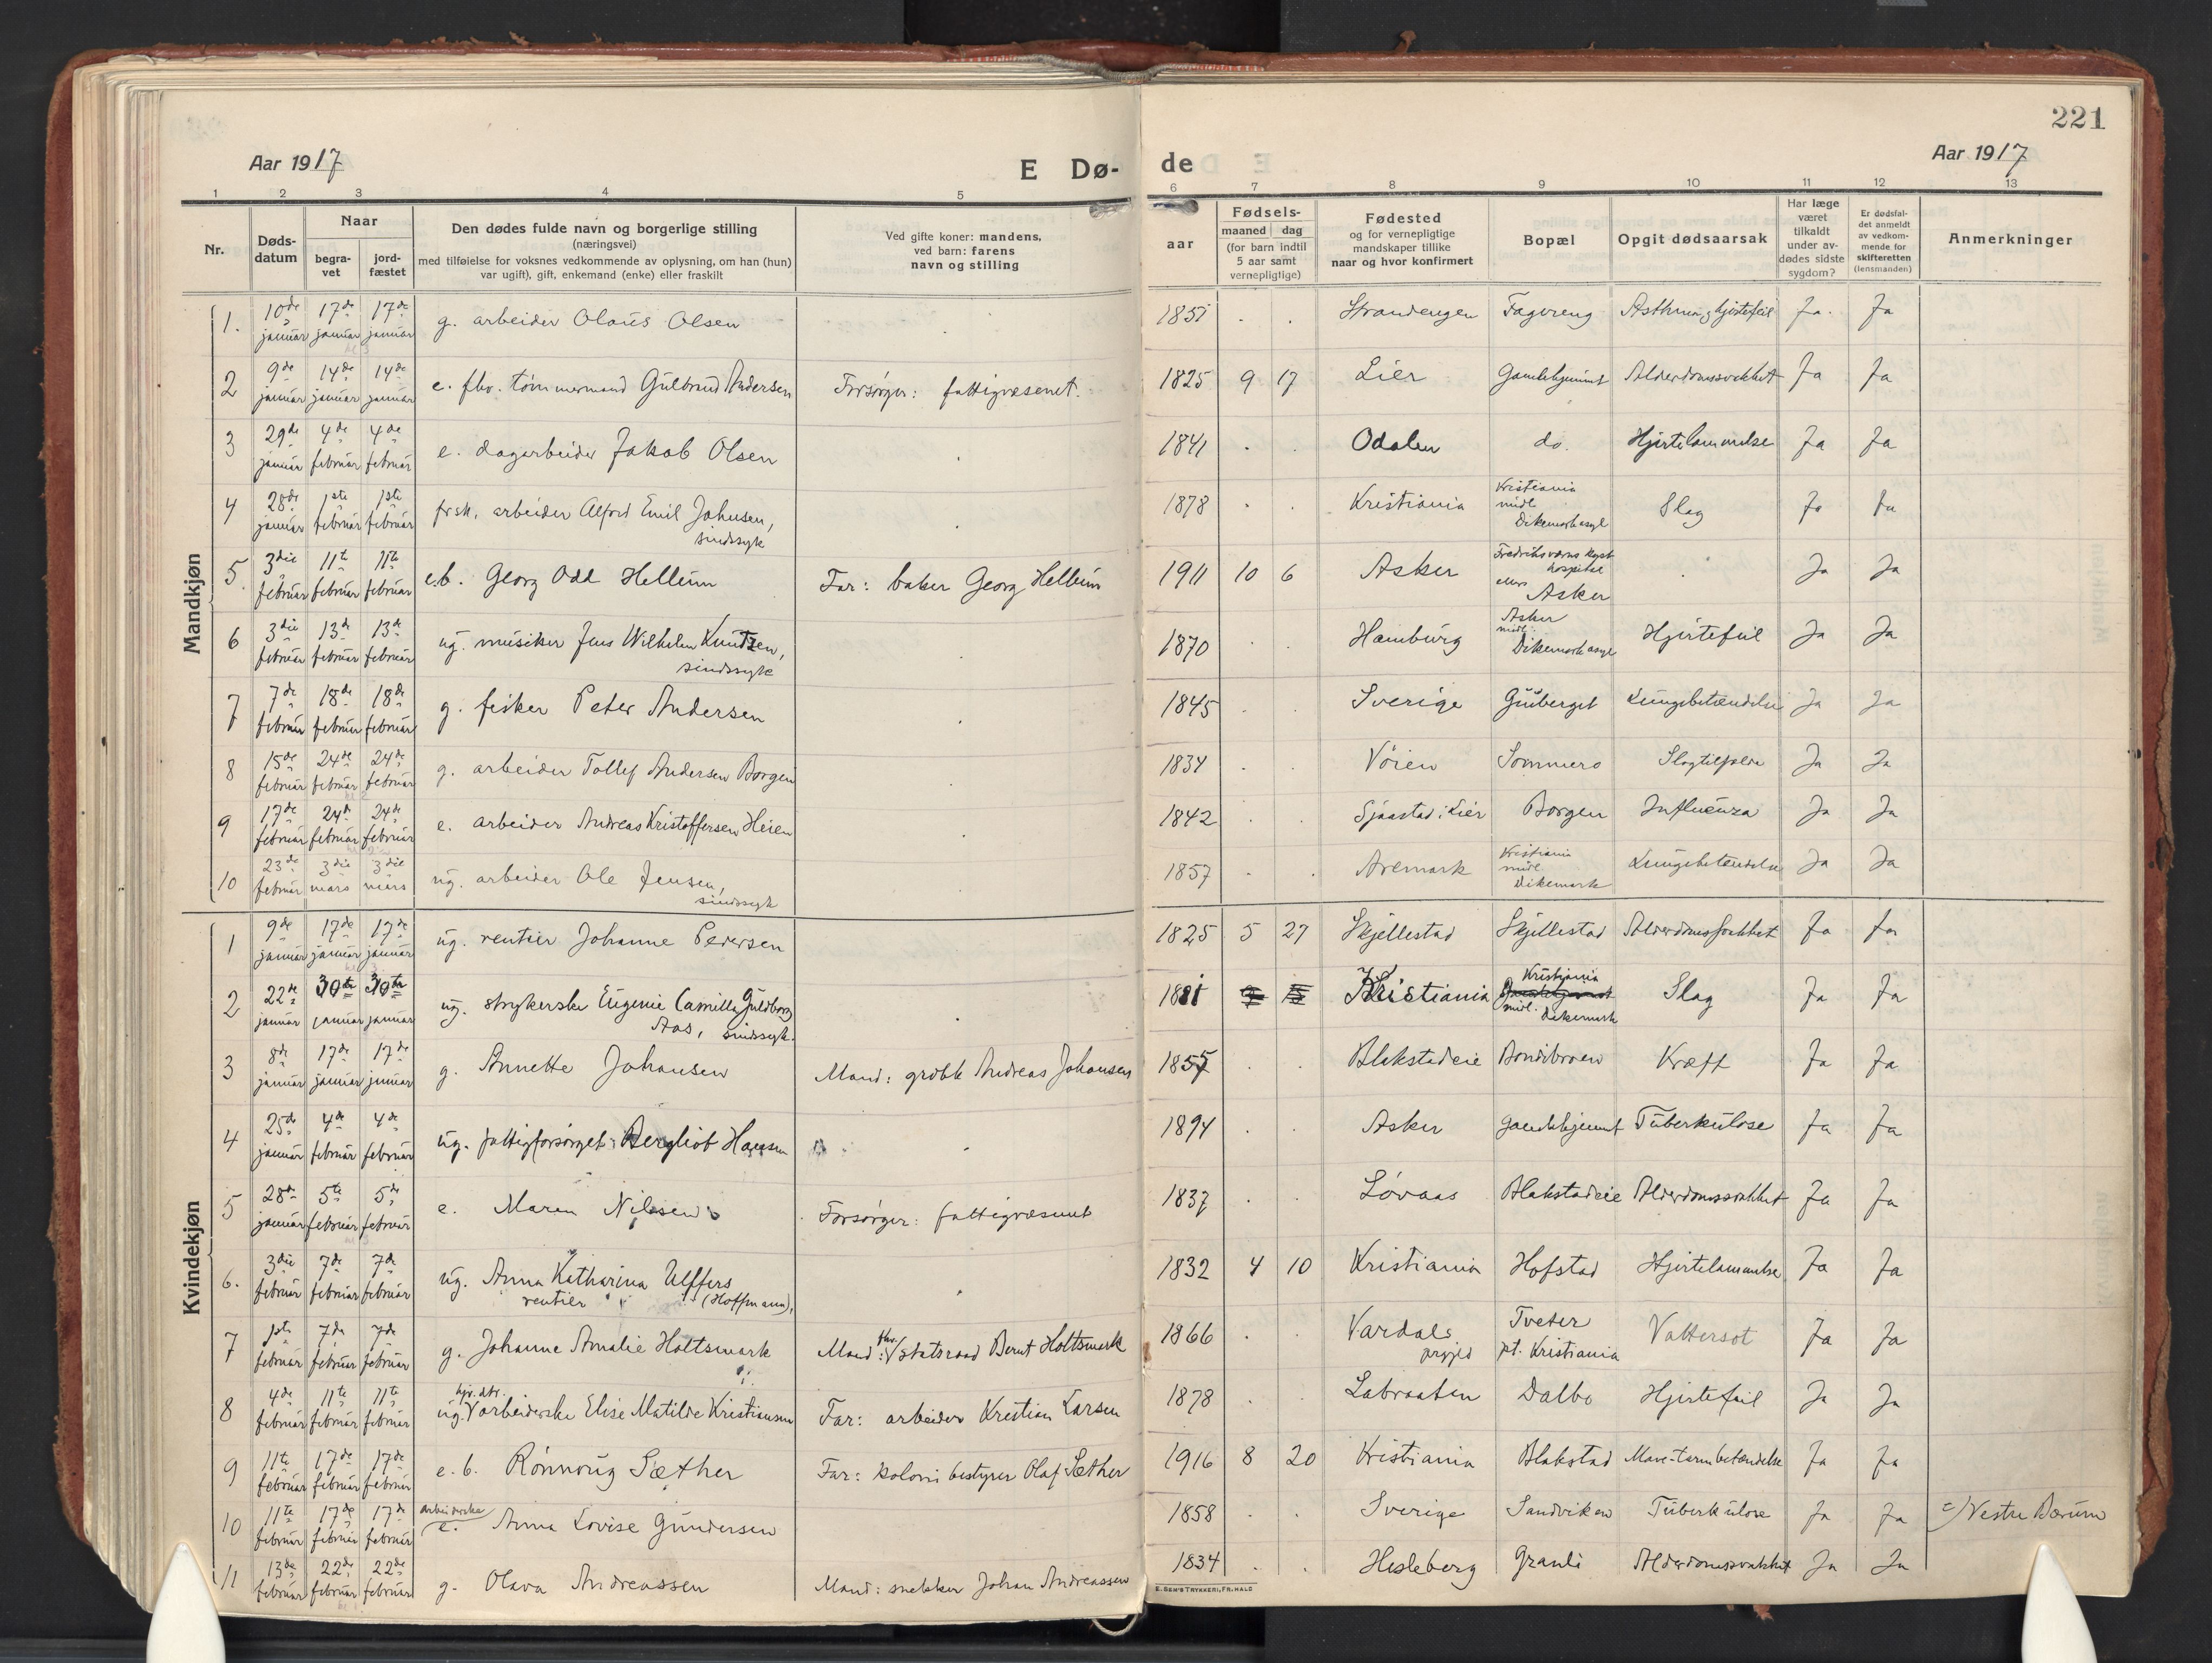 221
Aar 1917
E Dø-
de
Aar 1917
1 2 3 4 5 6 7 8 9 10 11 12 13
Nr.
Døds-
datum
Naar
begra-
vet
jord-
fæstet
Den dødes fulde navn og borgerlige stilling
(næringsvei)
med tilføielse for voksnes vedkommende av oplysning, om han (hun)
var ugift), gift, enkemand (enke) eller fraskilt
Ved gifte koner: mandens,
ved barn: farens
navn og stilling
aar
Fødsels-
maaned dag
(for barn indtil
5 aar samt
vernepligtige)
Fødested
og for vernepligtige
mandskaper tillike
naar og hvor konfirmert
Bopæl
Opgit dødsaarsak
Har læge
været
tilkaldt
under av-
dødes sidste
sygdom?
Er dødsfal-
det anmeldt
av vedkom-
mende for
skifteretten
(lensmanden)
Anmerkninger
Mandkjøn
1. 10de januar 17de januar 17de januar g. arbeider Olaus Olsen 1851 Strandengen Fagereng Asthma, hjertefeil Ja. Ja
2 9de januar 14de januar 14de januar e. fhv. tømmermand Gulbrand Andersen Forsørger: fattigvæsenet. 1825 9 17 Lier Gamlehjemmet Alderdomssvakhet Ja Ja
3 29de januar 4de februar 4de februar e. dagarbeider Jakob Olsen 1841 Odalen do. Hjertelammelse Ja Ja
4 28de januar 1ste februar 1ste februar frsk. arbeider Alfred Emil Johnsen, sindssyk 1878 Kristiania Kristiania midl. Dikemark asyl Slag Ja Ja
5. 3die februar 11te februar 11te februar e.b. Georg Odd Hellum Far: baker Georg Hellum 1911 10 6 Asker Fredriksværns kyst hospital ellers Asker Ja Ja
6 3die februar 13de februar 13de februar ug. musiker Jens Wilhelm Knutzen, sindssyk 1870 Hamburg Asker midl. Dikemark asyl Hjertefeil Ja Ja
7 7de februar 18de februar 18de februar g. fisker Peter Andersen 1845 Sverige Lungebetændelse Ja Ja
8 15de februar 24de februar 24de februar g. arbeider Tollef Andersen Borgen 1834 Vøien Sommero Slagtilfælde Ja Ja
9 17de februar 24de februar 24de februar e. arbeider Andreas Kristoffersen Heien 1842 Sjaastad i Lier Borgen Influenza Ja Ja
10 23de februar 3die mars 3die mars ug. arbeider Ole Jensen, sindssyk 1857 Aremark Kristiania midl. Dikemark Lungebetændelse Ja Ja
Kvindekjøn
1 9de januar 17de januar 17de januar ug. rentier Johanne Pedersen 1825 5 27 Skjellestad Skjellestad Alderdomssvakhet Ja Ja
2 22de januar 30te januar 30te januar ug. strykerske Eugenie Camilla Guldborg Aas, sindssyk. 1881 Kristiania Kristiania midl. Dikemark Slag Ja Ja
3 8de januar 17de januar 17de januar g. Annette Johansen Mand: grdbr. Andreas Johansen 1855 Blakstadeie Bondibroen Kræft Ja Ja
4 25de januar 4de februar 4de februar ug. fattigforsørget Bergliot Hansen 1894 Asker Gamlehjemmet Tuberkulose Ja Ja
5 28de januar 5te februar 5te februar e. Maren Nilsen Forsørger: fattigvæsenet 1837 Løvaas Blakstadeie Alderdomssvakhet Ja Ja
6. 3die februar 7de februar 7de februar ug. Anna Katharina Ulffers (Hoffmann), rentier 1832 4 10 Kristiania Hofstad Hjertelammelse Ja Ja
7 1ste februar 7de februar 7de februar g. Johanne Amalie Holtsmark Mand: fhv. statsraad Bernt Holtsmark 1866 Vardals prgjd Tveter pt. Kristiania Vattersot Ja Ja
8 4de februar 11te februar 11te februar ug. hjv. dtr. arbeiderske Elise Matilde Kristiansen Far: arbeider Kristian Larsen 1878 Labraaten Dalbo Hjertefeil Ja Ja
9 11te februar 17de februar 17de februar e.b. Rønnoug Sæther Far: koloni bestyrer Olaf Sæther 1916 8 20 Kristiania Blakstad Mave-tarmbetændelse Ja Ja
10 11te februar 17de februar 17de februar arbeiderske e. Anna Lovise Gundersen 1858 Sverige Sandviken Tuberkulose Ja Ja =) Vestre Bærum
11 13de februar 22de februar 22de februar g. Olava Andreassen Mand: snekker Johan Andreassen 1834 Hesleberg Granli Alderdomssvakhet Ja Ja
E. SEM'S TRYKKERI, FR.HALD